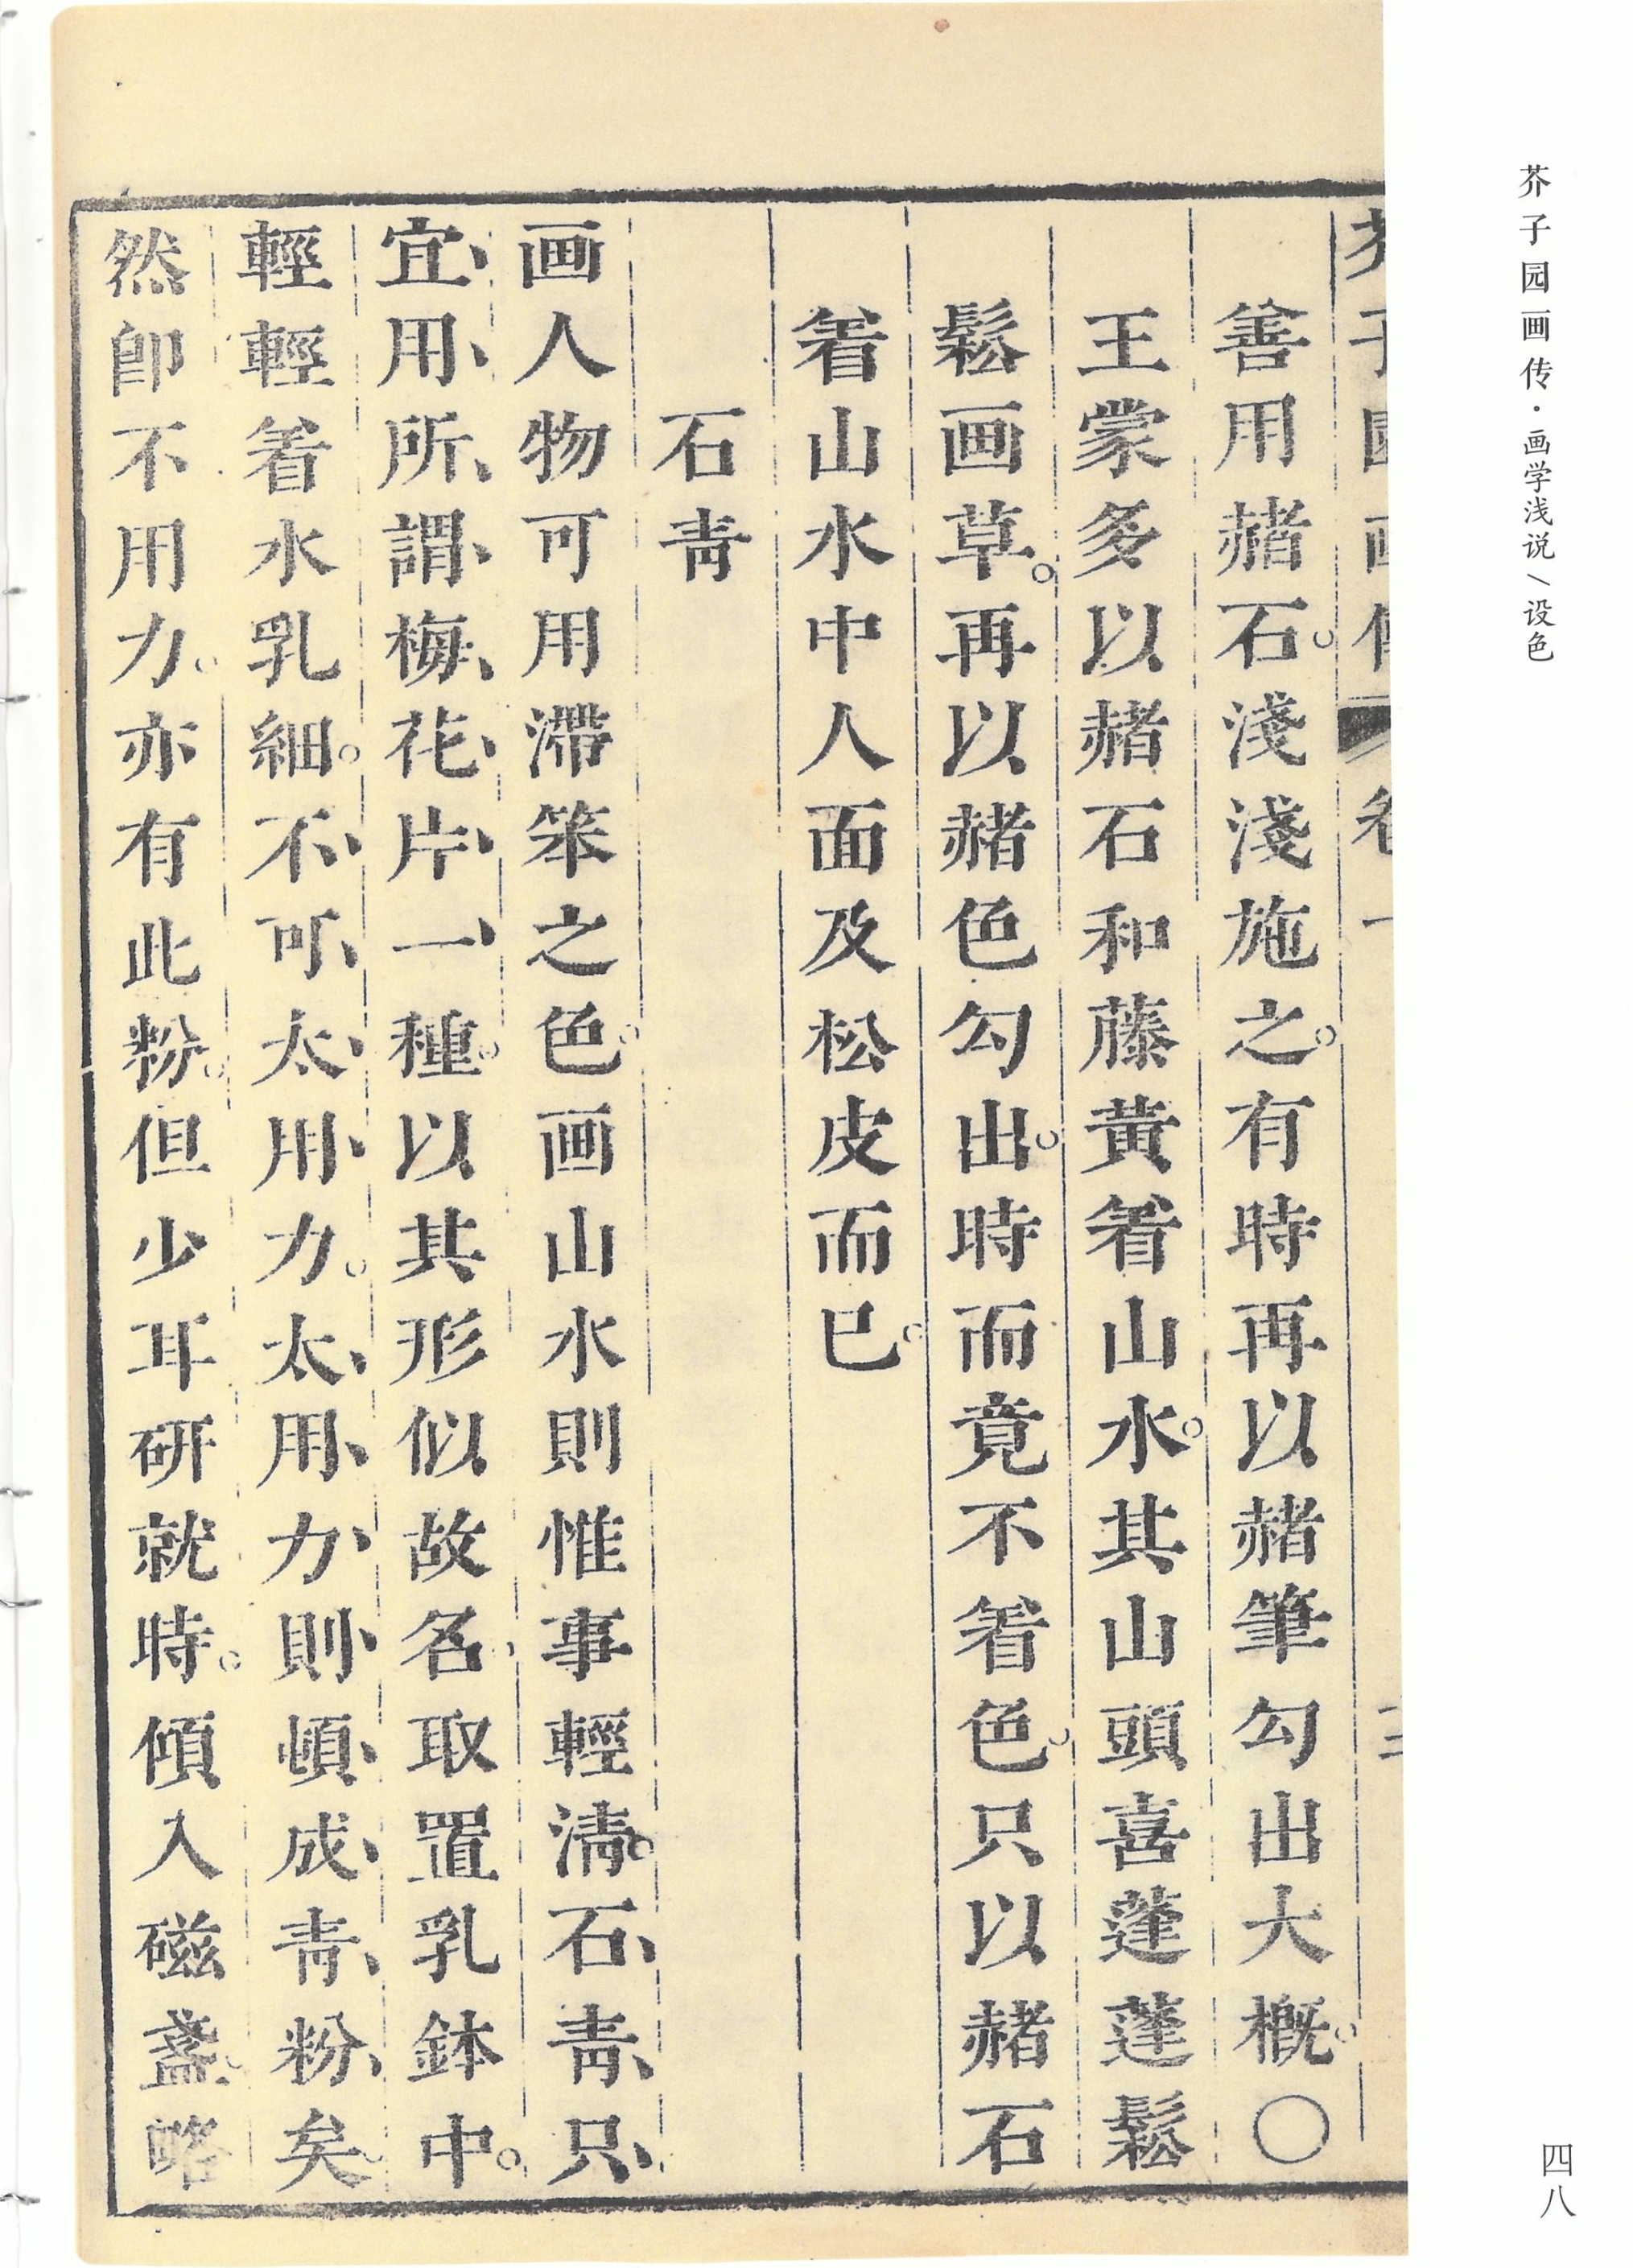 芥子园画传·画学浅说/设色
善用赭石。淺淺施之。有時再以赭筆勾出大概。〇
王蒙多以赭石和藤黃着山水。其山頭喜蓬蓬鬆
鬆画草。再以赭色勾出。時而竟不着色。只以赭石
着山水中人面及松皮而已。
石青
画人物可用滯笨之色。画山水則惟事輕清。石、青、只、
宜、用、所、謂、梅、花、片、一、種。以其形似故名。取置乳鉢中。
輕輕着水乳細。不、可、太、用、力。太、用、力、則、頓、成、青、粉、矣。
然卽不用力。亦有此粉。但少耳研就時。傾入磁盞。略
四八